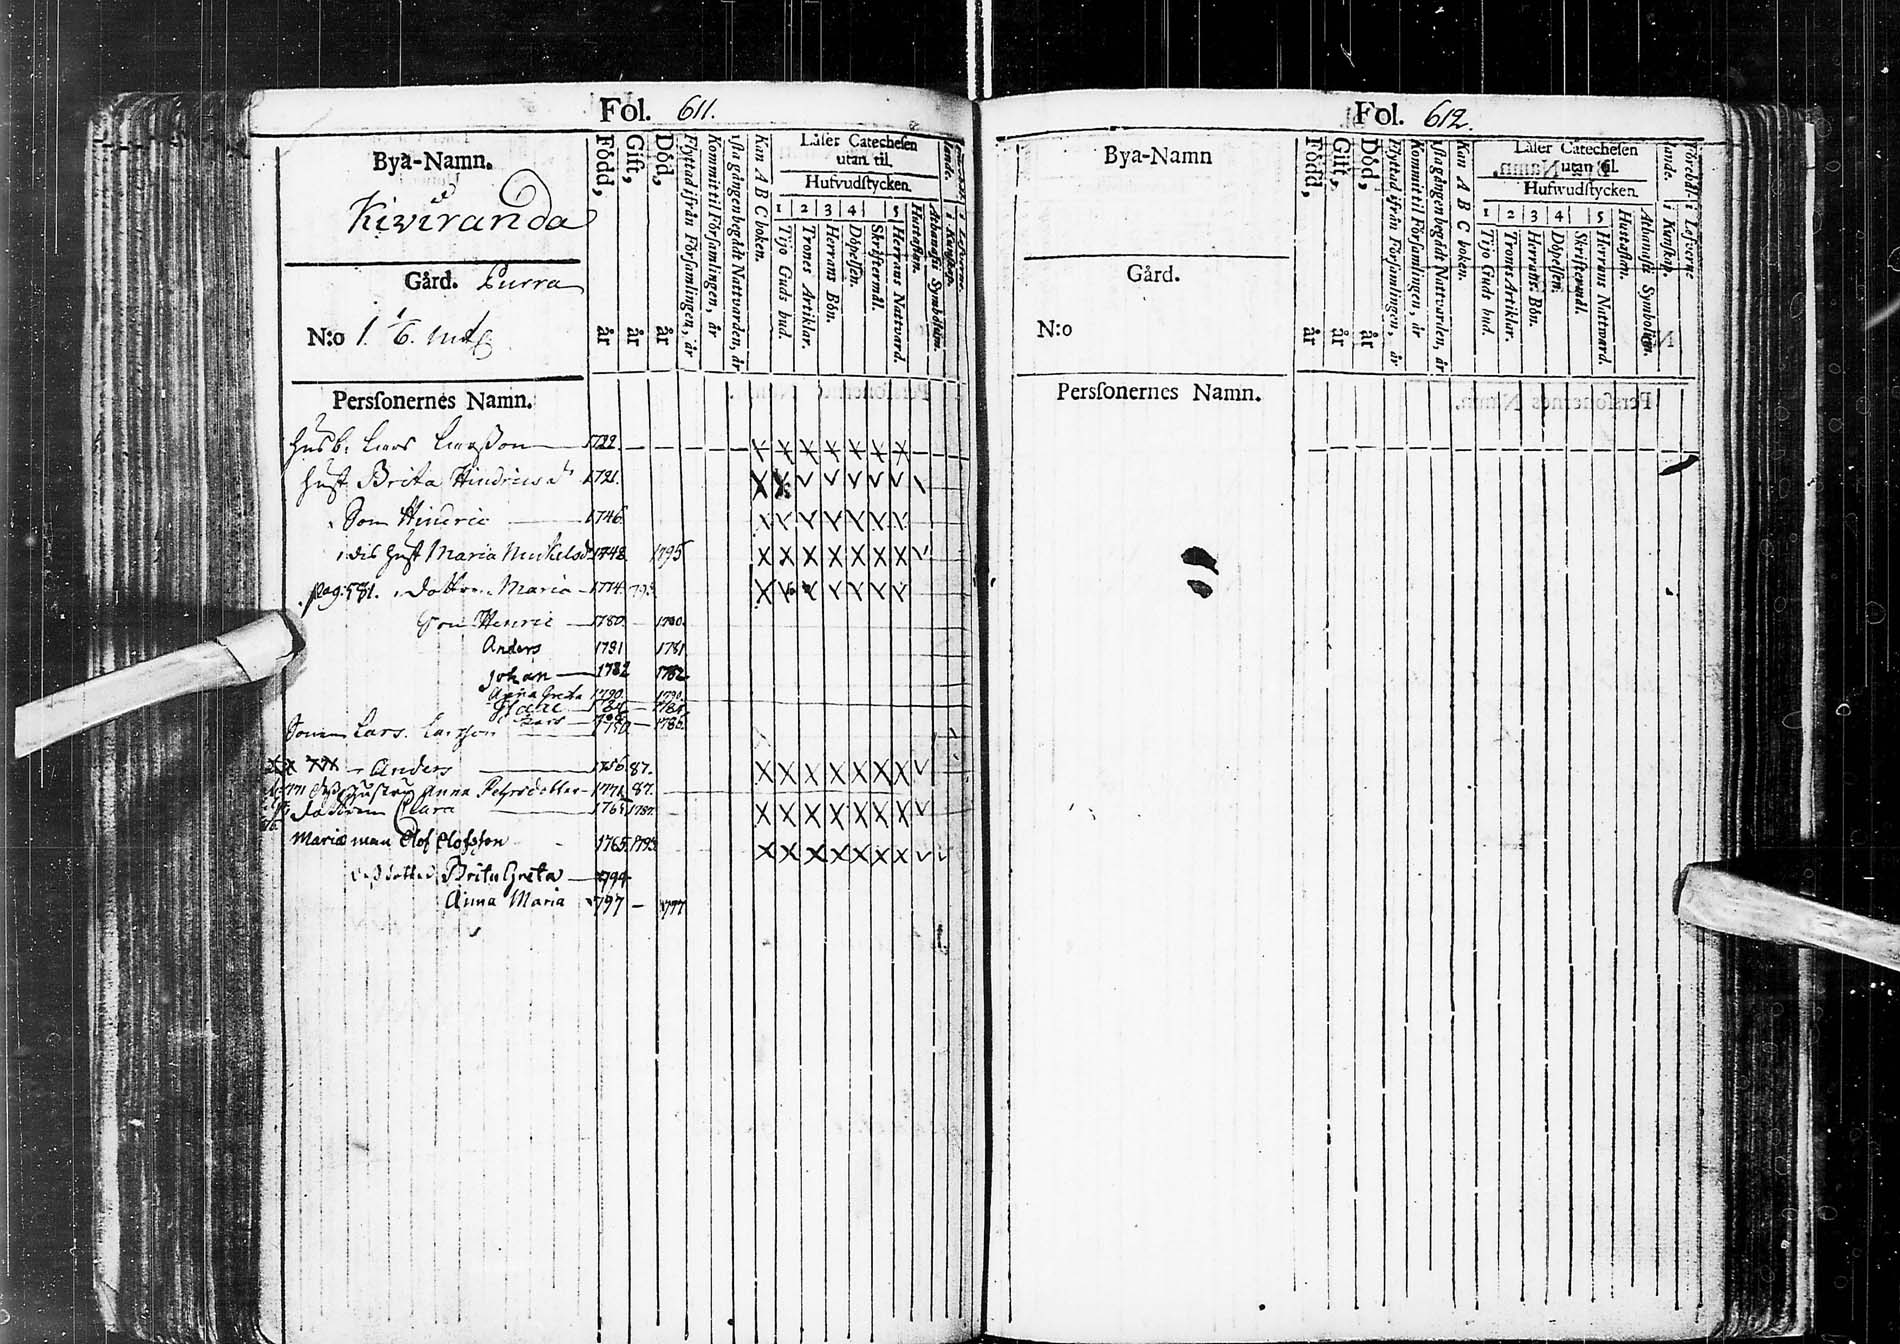 Fol. 611.
Bya-Namn.
Kiviranda
Gård. Purra
N:o 1. 1/6. mtl
Född, år
Gift, år
Död, år
Flyttad ifrån Församlingen, år
Kommit til Församlingen, år
1sta gången begådt Nattvarden, år
Kan A B C boken.
Läser Catechesen
utan til.
Hufvudstycken.
1 2 3 4 5
Tijo Guds bud.
Trones Artiklar.
Herrans Bön.
Döpelsen.
Skriftermål.
Herrans Nattvard.
Hustaflan.
Athanasii Symbolum.
Perssonernes Namn.
Husb. Lars Larsson 1722.
Hust Brita Hindricsd:r 1721.
Son Hinric 1746
dis Hust Maria Mickelsd 1748 1795
pag: 581. Dottren Maria 1774. 793
Son Henric 1780
Anders 1781 1781
Johan 1782 1782
Anna Greta 1790 1790.
Lars 1786.
Sonen Lars Larsson
Anders 1756 87.
Hustru Anna Pehrsdotter 1771 87.
Dottren Clara 1765 1787
Mariæ man Olof Olofsson 1765 1793
dess dotter Brita Greta 1794
Anna Maria 1797
Fol. 612.
Bya-Namn
Gård.
N:o
Född, år
Gift, år
Död, år
Flyttad ifrån Församlingen, år
Kommit til Församlingen, år
1sta gången begådt Nattvarden, år
Kan A B C boken.
Läser Catechesen
utan til.
Hufwudstycken.
1 2 3 4 5
Tijo Guds bud.
Trones Artiklar.
Herrans Bön.
Döpelsen.
Skriftermål.
Herrans Nattvard.
Hustaflan.
Athanasii Symbolum.
Perssonernes Namn.